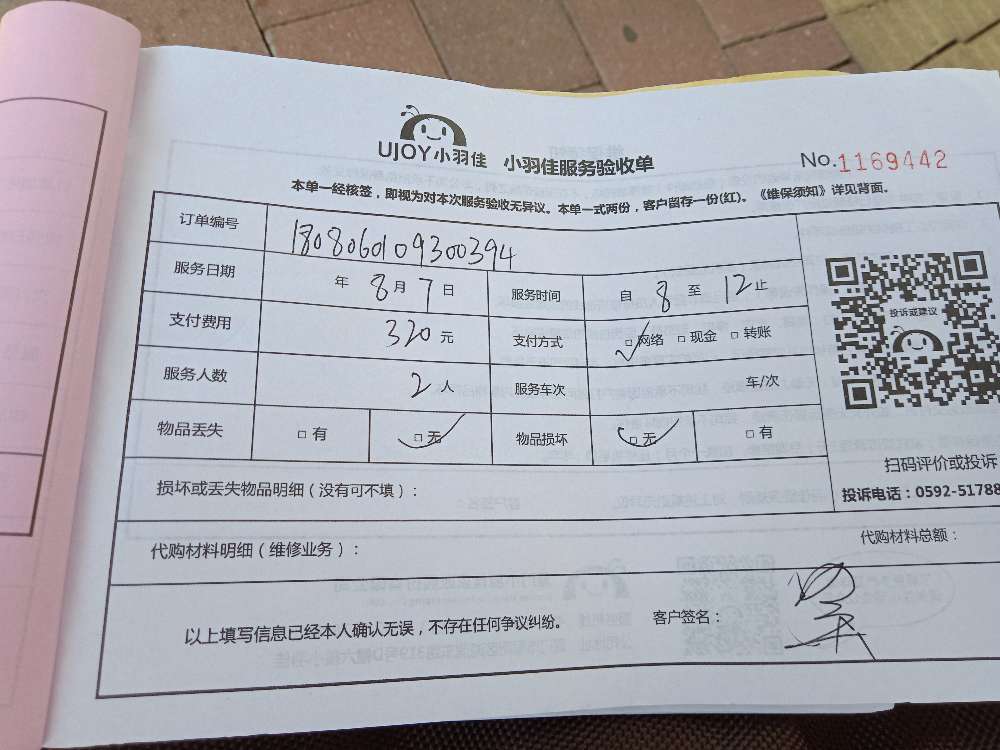 UJOY小羽佳 小羽佳服务验收单 No.1169442
本单一经核签，即视为对本次服务验收无异议。本单一式两份，客户留存一份(红)。《维保须知》详见背面。
订单编号 1808060109300394
服务日期 年 8月7日 服务时间 自 8 至 12止
支付费用 320元 支付方式 □网络 □现金 □转账
服务人数 2人 服务车次 车/次
物品丢失 □有 □无 物品损坏 □无 □有
投诉或建议
扫码评价或投诉
投诉电话：0592-51788
损坏或丢失物品明细（没有可不填）：
代购材料明细（维修业务）： 代购材料总额：
以上填写信息已经本人确认无误，不存在任何争议纠纷。 客户签名：